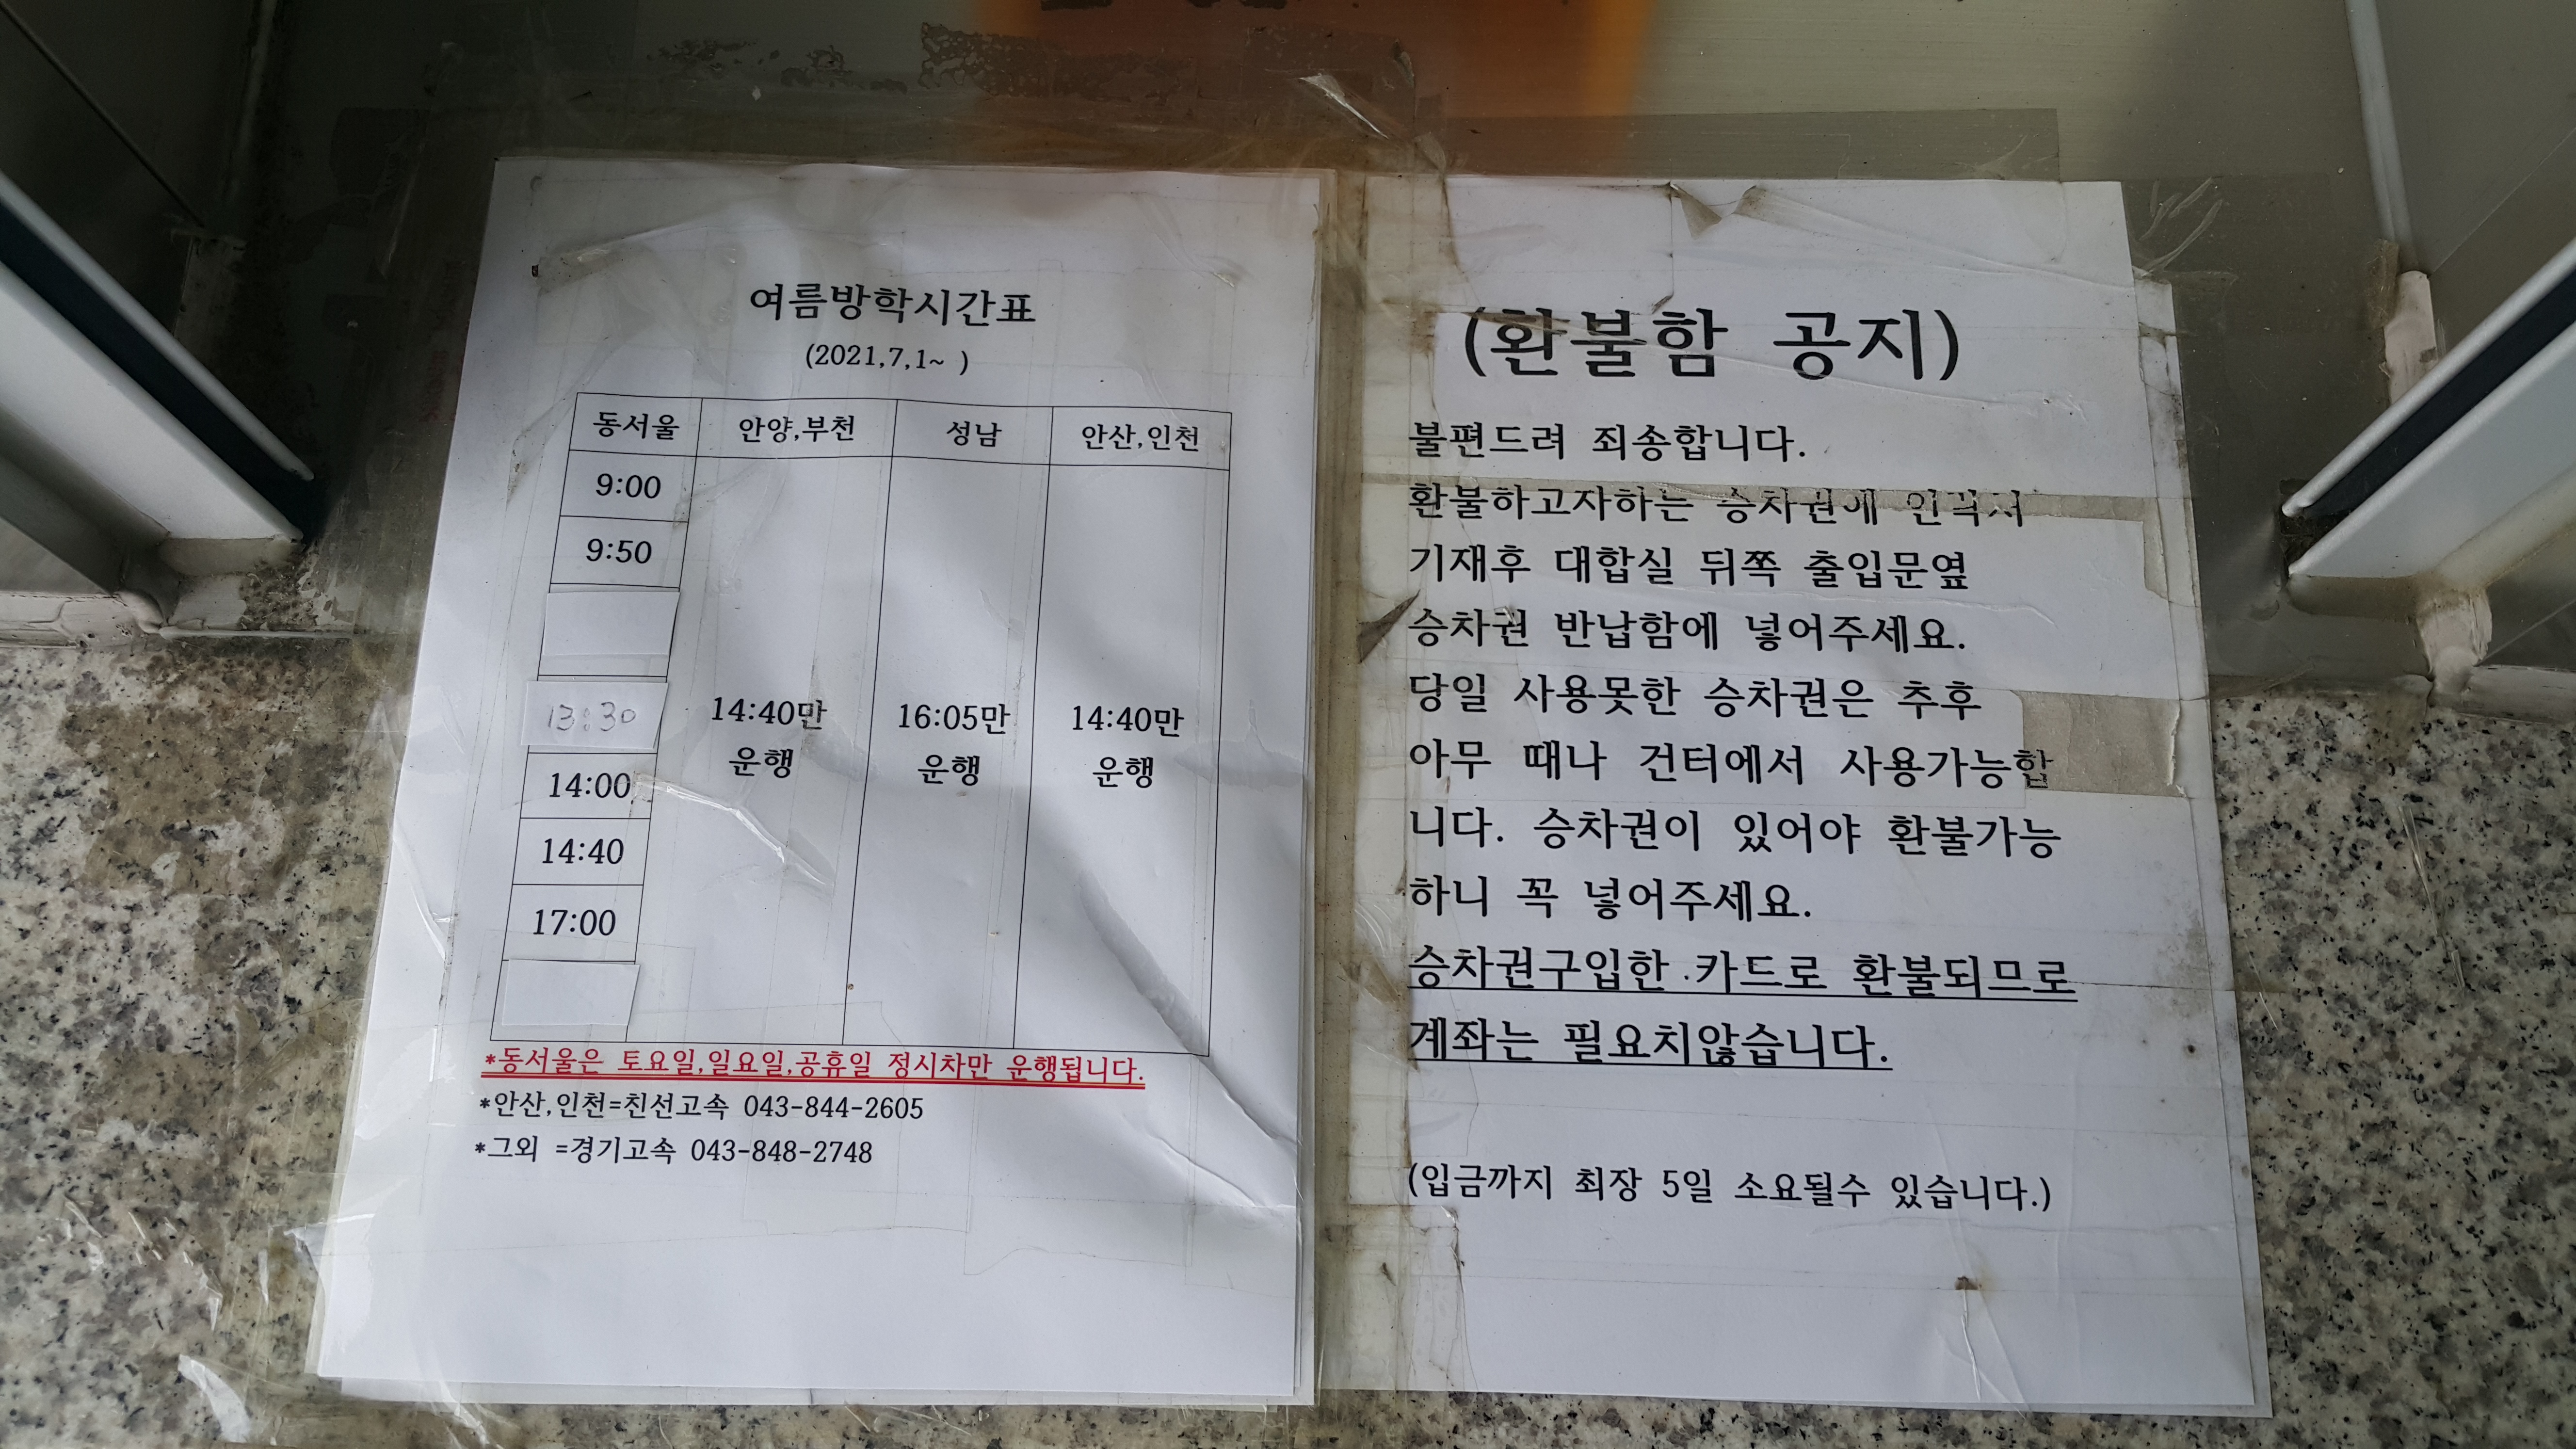 여름방학시간표
(2021,7,1~ )
동서울 안양,부천 성남 안산,인천
9:00
9:50
13:30
14:40만 16:05만 14:40만
운행 운행 운행
14:00
14:40
17:00
*동서울은 토요일,일요일,공휴일 정시차만 운행됩니다.
*안산,인천=친선고속 043-844-2605
*그외 =경기고속 043-848-2748
(환불함 공지)
불편드려 죄송합니다.
환불하고자하는 승차권에 인적사
기재후 대합실 뒤쪽 출입문옆
승차권 반납함에 넣어주세요.
당일 사용못한 승차권은 추후
아무 때나 건터에서 사용가능합
니다. 승차권이 있어야 환불가능
하니 꼭 넣어주세요.
승차권구입한 카드로 환불되므로
계좌는 필요치않습니다.
(입금까지 최장 5일 소요될수 있습니다.)